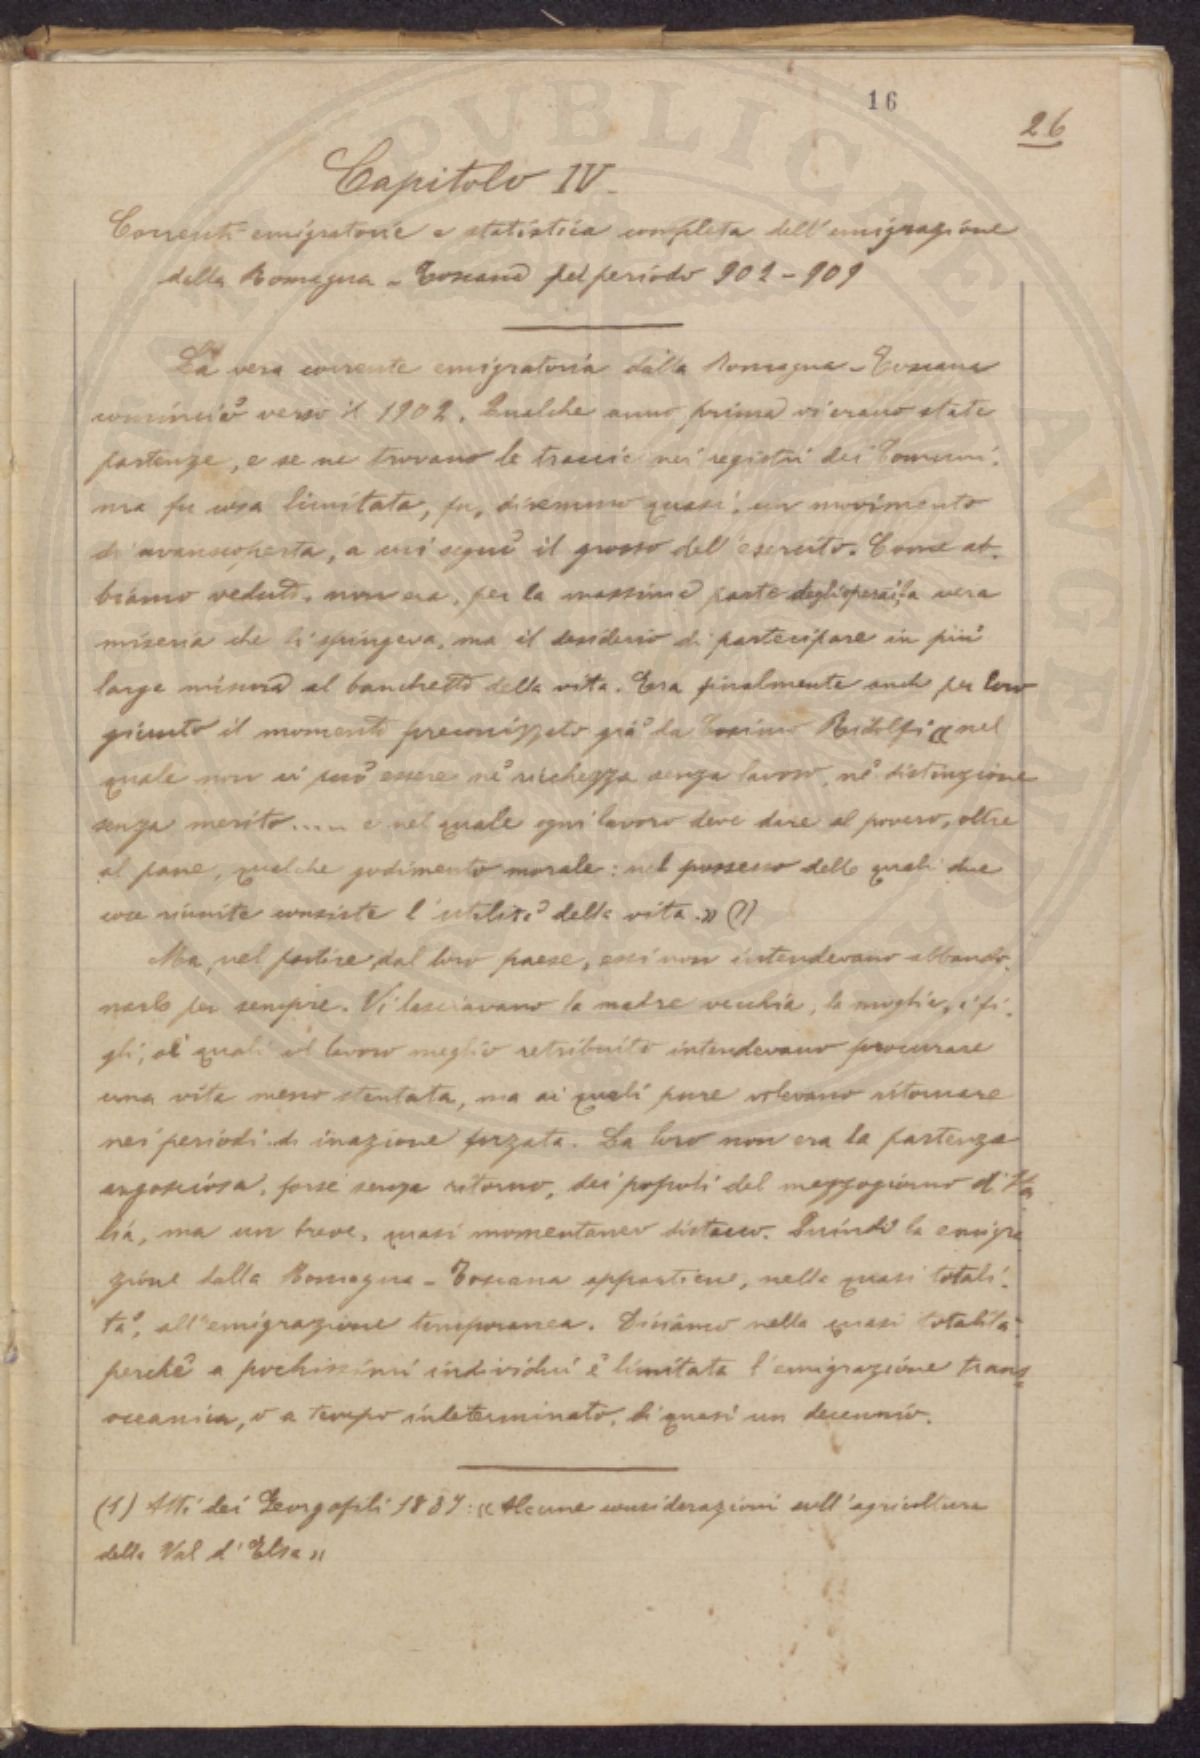 16
26
Capitolo IV
Correnti emigratorie e statistica completa dell'emigrazione
dalla Romagna - Toscana pel periodo 902-909
La vera corrente emigratoria dalla Romagna - Toscana
cominciò verso il 1902. Qualche anno prima vi erano state
partenze, e se ne trovano le traccie nei registri dei Comuni,
ma fu cosa limitata, fu, diremmo quasi, un movimento
di avanscoperta, a cui seguì il grosso dell'esercito. Come ab-
biamo veduto, non era, per la massima parte degli operai, la vera
miseria che li spingeva, ma il desiderio di partecipare in più
larga misura al banchetto della vita. Era finalmente anche per loro
giunto il momento preconizzato già da Cosimo Ridolfi « nel
quale non vi può essere nè ricchezza senza lavoro, nè distinzione
senza merito..... e nel quale ogni lavoro deve dare al povero, oltre
al pane, qualche godimento morale: nel possesso delle quali due
cose riunite consiste l'utilità della vita.» (1)
Ma, nel partire dal loro paese, essi non intendevano abbando-
narlo per sempre. Vi lasciavano la madre vecchia, la moglie, i fi-
gli, ai quali col lavoro meglio retribuito intendevano procurare
una vita meno stentata, ma ai quali pure volevano ritornare
nei periodi di inazione forzata. La loro non era la partenza
angosciosa, forse senza ritorno, dei popoli del mezzogiorno d'Ita
lia, ma un breve, quasi momentaneo distacco. Quindi la emigra
zione dalla Romagna - Toscana appartiene, nella quasi totali-
tà, all'emigrazione temporanea. Diciamo nella quasi totalità
perchè a pochissimi individui è limitata l'emigrazione trans-
oceanica, o a tempo indeterminato, di quasi un decennio.
(1) Atti dei Georgofili 1837: « Alcune considerazioni sull'agricoltura
della Val d'Elsa »